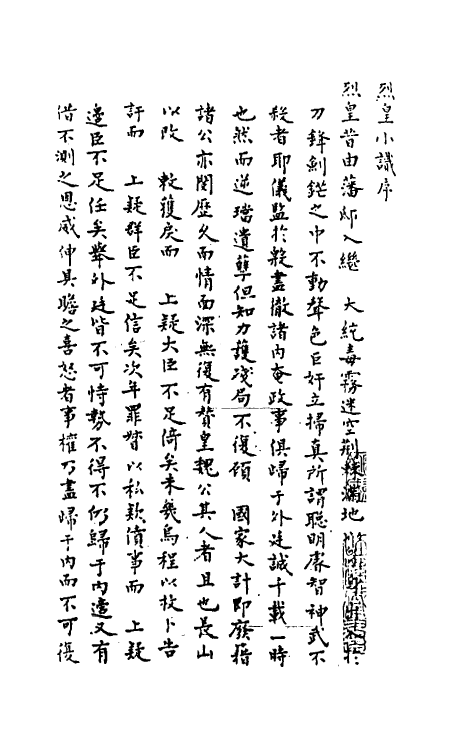 烈皇小識序
烈皇昔由藩邸入繼　大統毒霧迷空荆棘滿地以
刀鋒劍鋩之中不動聲色巨奸立掃真所謂聰明睿智神武不
殺者耶儀監於殷盡撤諸內奄政事俱歸于外廷誠千載一時
也然而逆璫遺孽但知力護殘局不復顧　國家大計即廢籍
諸公亦閱歷久而情面深無復有贊皇魏公其人者且也長山
以改　敕獲戾而　上疑大臣不足倚矣未幾烏程以枚卜告
訐而　上疑群臣不足信矣次年罪督以私款僨事而　上疑
邊臣不足任矣舉外廷皆不可恃勢不得不仍歸于內邊又有
借不測之恩威伸具瞻之喜怒者事權乃盡歸于內而不可復